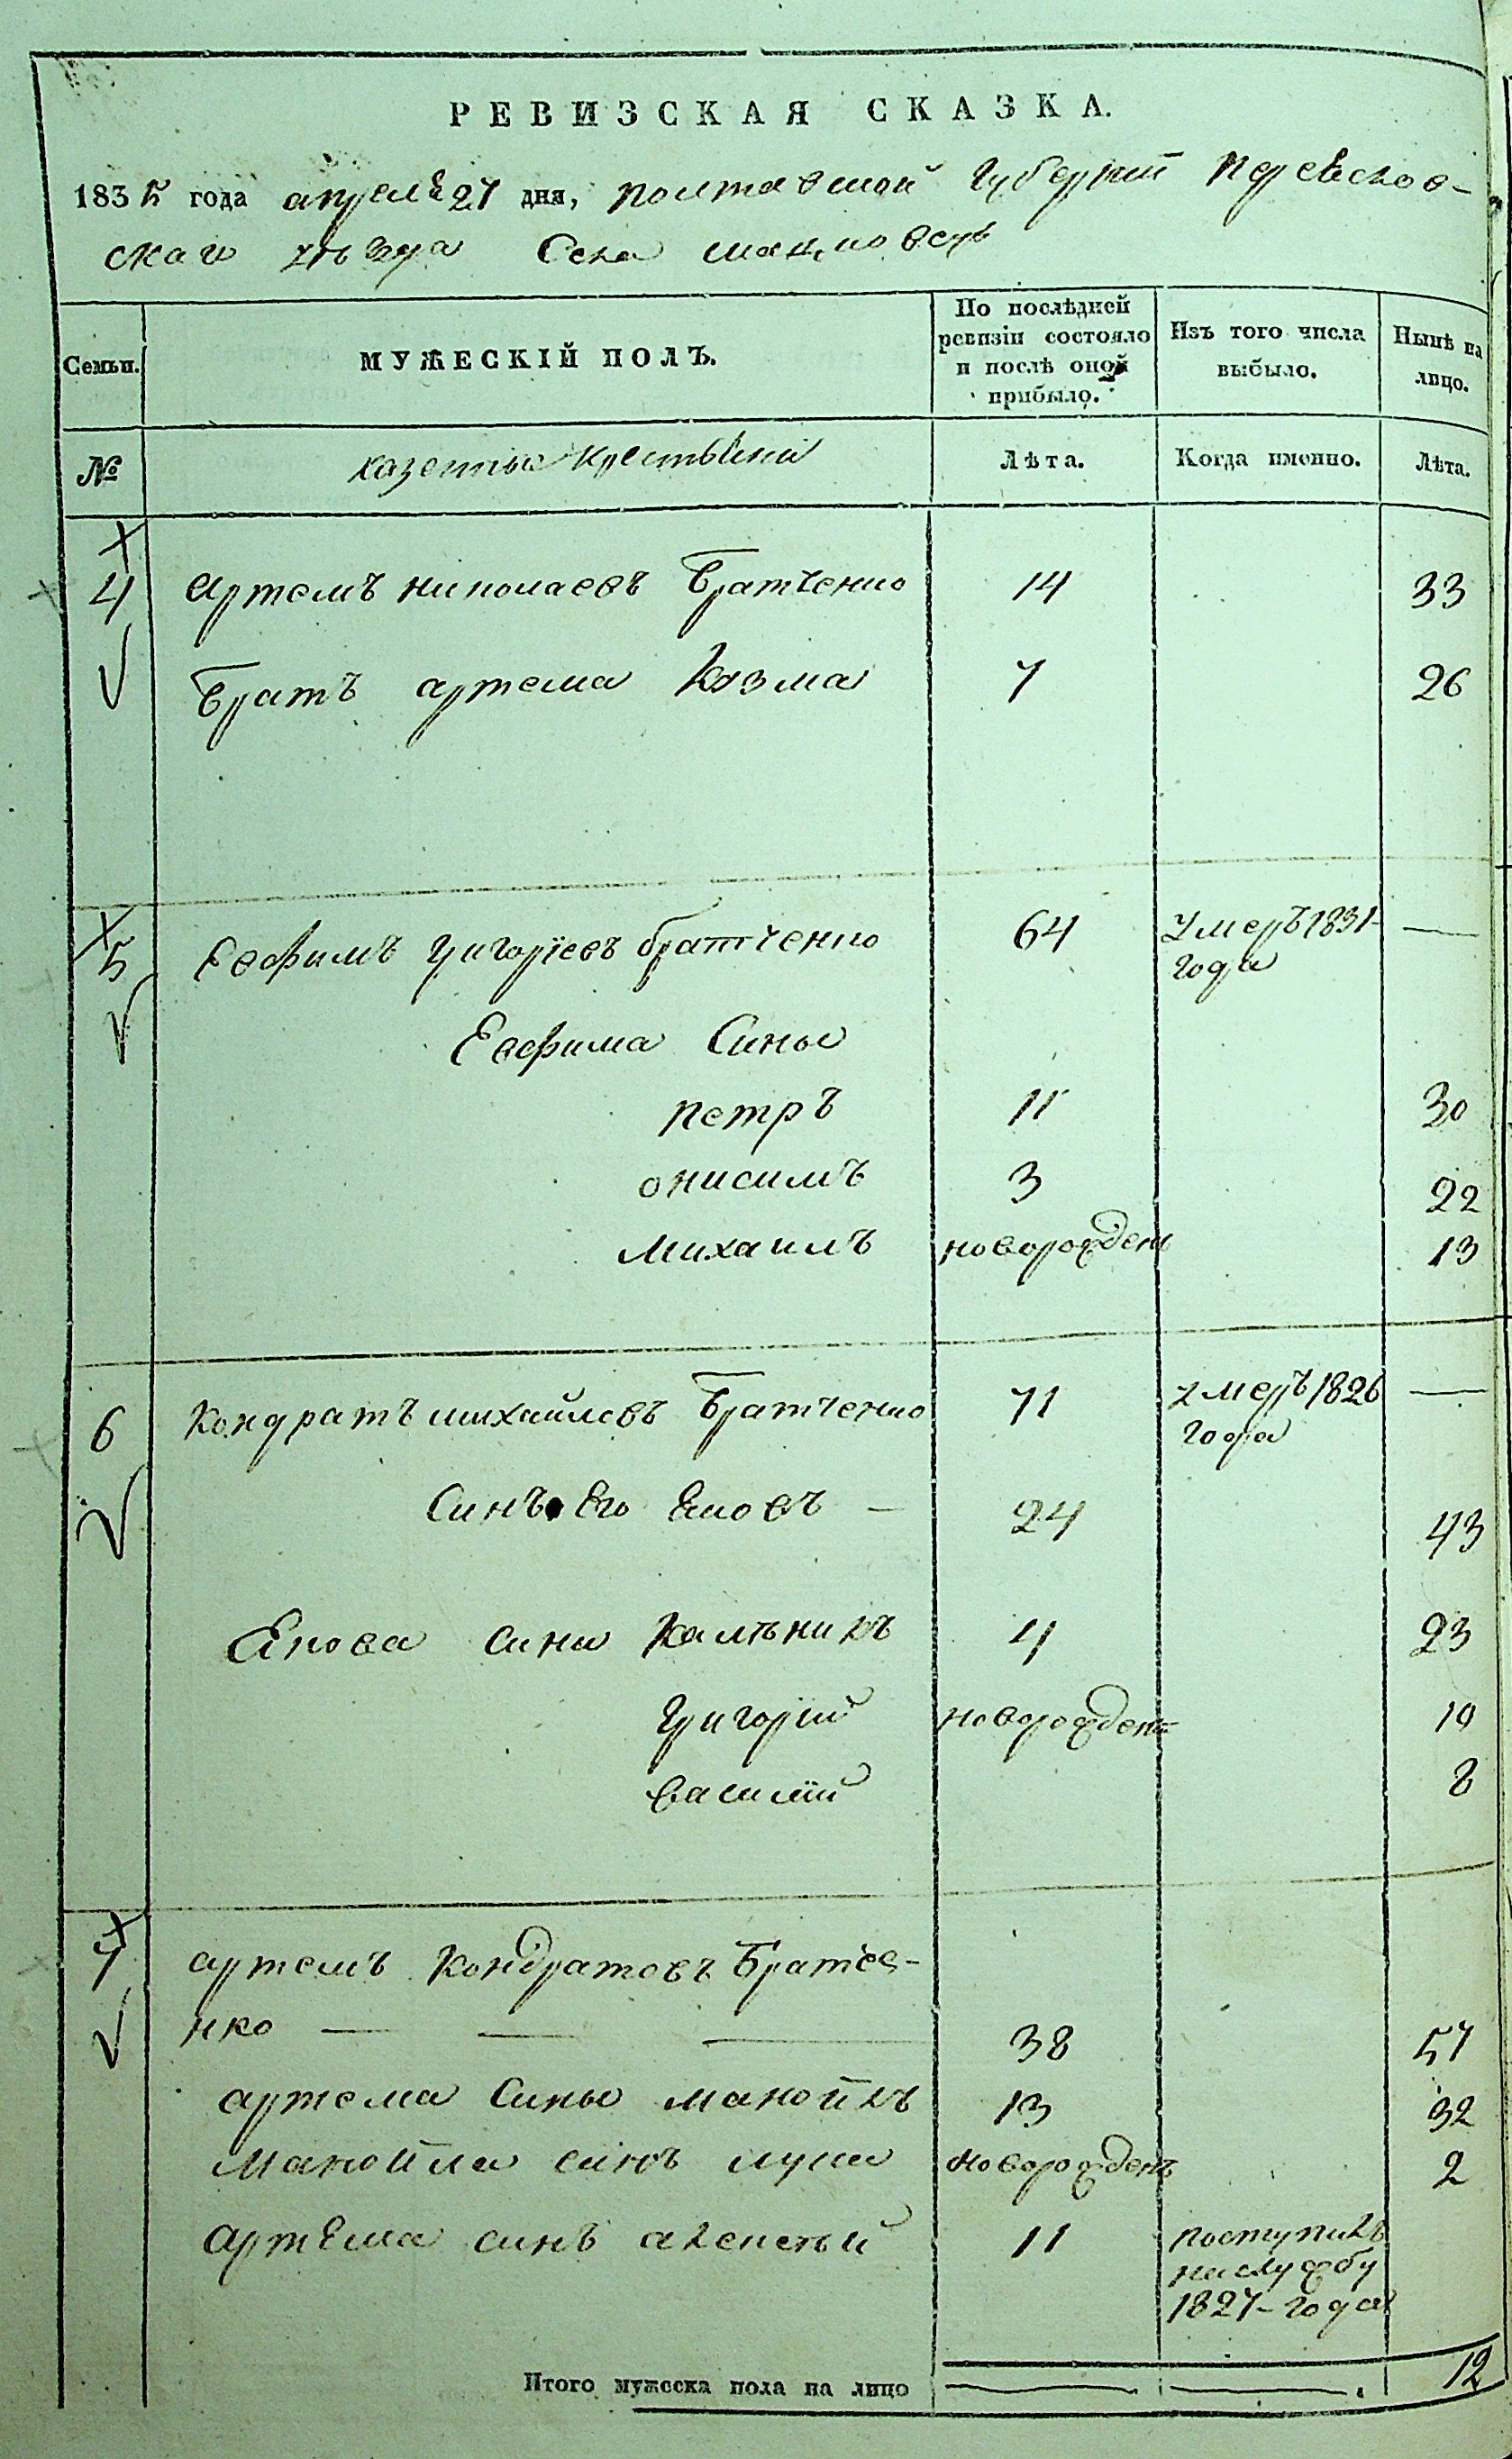 РЕВИЗСКАЯ СКАЗКА.
1835 года апреля 27 дня, полтавской губернии
скаго уезда Села
Семьи.
МУЖЕСКІЙ ПОЛЪ.
По послѣдней ревизіи состояло и послѣ оной прибыло.
Изъ того числа выбыло.
Нынѣ на лицо.
№
казенные крестьяни
Лѣта.
Когда именно.
Лѣта.
4 артемъ николаевъ братченко 14 33
братъ артема Козма 7 26
5 Евфимъ григоріевъ братченко 64 умеръ 1831- —
года
Евфима Сины
петръ 11 30
онисимъ 3 22
михаилъ новорожденъ 13
6 кондратъ михайловъ братченко 71 умеръ 1826 —
года
Синъ Его Яковъ — 24 43
Якова сини Калѣникъ 4 23
григорій новорожденъ
василій 8
7 артемъ кондратовъ братче-
нко — — — 38 57
артема Сины манойлъ 13 32
манойла синъ лука новорожденъ 2
артема синъ алексей 11 поступилъ
на службу
1827-года
Итого мужеска пола на лицо — — 12